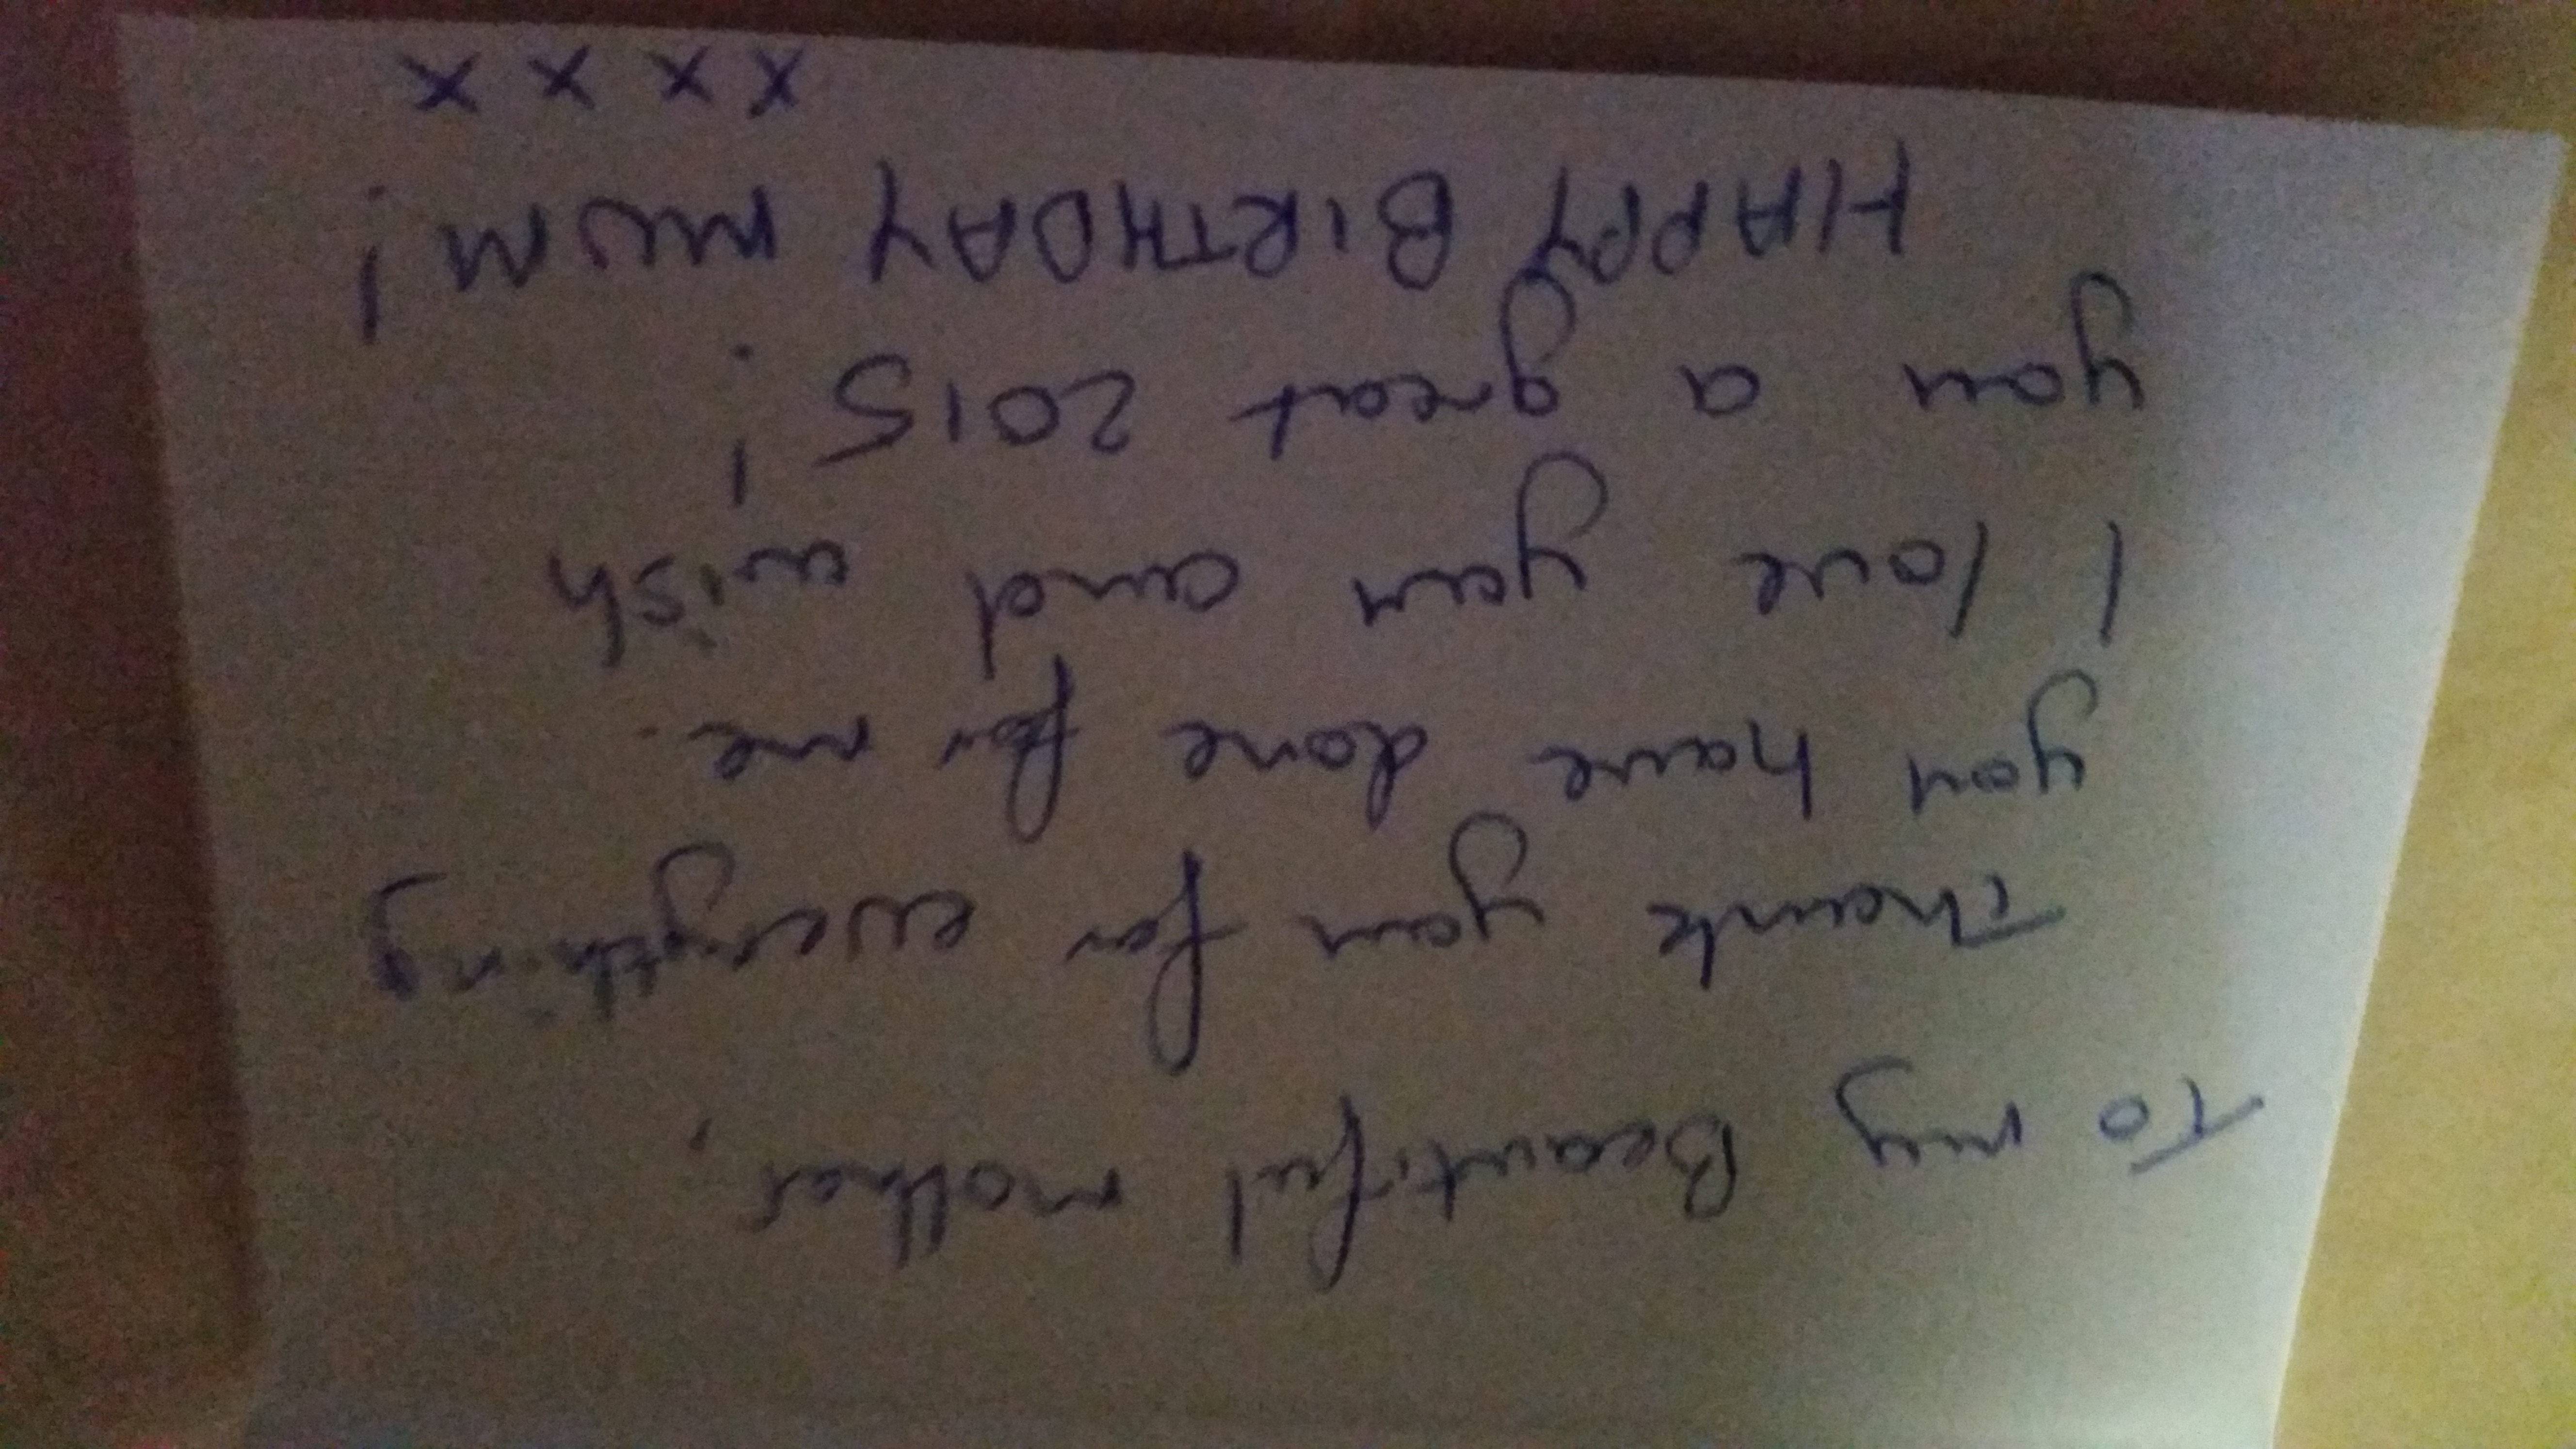 To my Beautiful mother,
Thank you for everything
you have done for me.
I love you and wish
you a great 2015!
HAPPY BIRTHDAY MUM!
x x x x